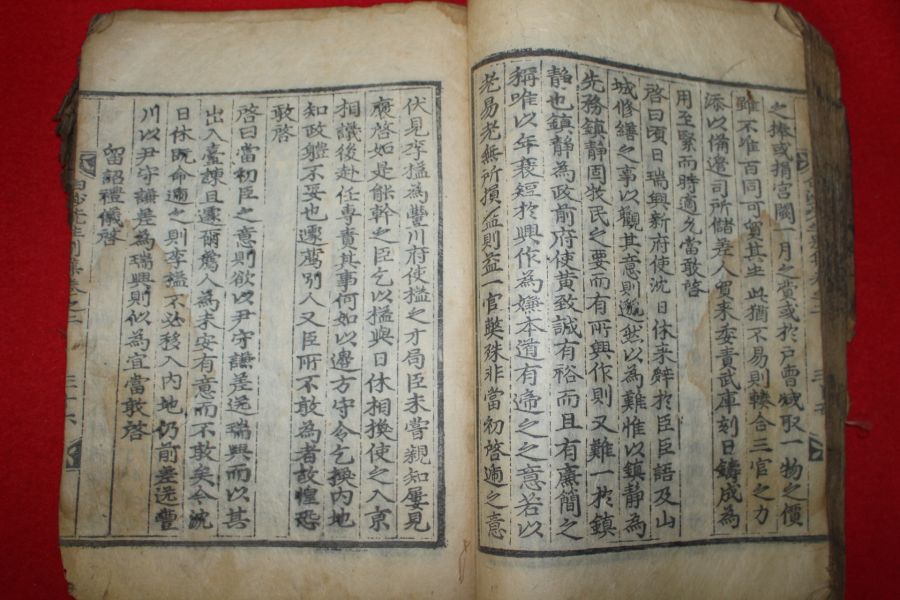 之捧或捐宮闕一月之費或於戶曹賦取一物之價
雖不唯百同可貿其生此猶不易則轃合三官之力
添以備邊司所儲差人貿來委責武庫刻日鑄成為
用至緊而時適允當敢啓
啓曰頃日瑞興新府使沈日休來辭於臣臣語及山
城修繕之事以觀其意則邈然以為難惟以鎮靜為
先務鎮靜固牧民之要而有所興作則又難一於鎮
静也鎮靜為政前府使黃致誠有裕而且有廉簡之
稱唯以年衰短於興作為嫌本道有遞之之意若以
老易老無所損益則益一官弊殊非當初啓遞之意
伏見李搵為豐川府使搵之才局臣未嘗親知屢見
褒啓如是能幹之臣乞以搵與日休相換使之入京
相議後赴任專責其事何如以邊方守令乞換內地
知政體不妥也遽薦別人又臣所不敢為者故惶恐
敢啓
啓曰當初臣之意則欲以尹守謙差送瑞興而以其
出入臺諫且遽爾薦人為未安有意而不敢矣今沈
日休旣命遞之則李搵不必移入內地仍前差送豐
川以尹守謙差為瑞興則似為宜當敢啓
留詔禮儀啓